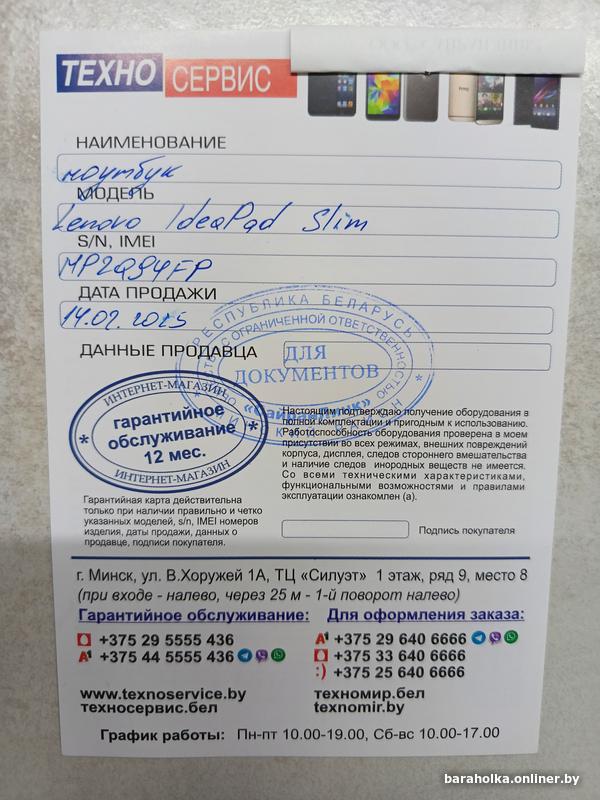 ТЕХНО СЕРВИС
НАИМЕНОВАНИЕ
ноутбук
МОДЕЛЬ
Lenovo IdeaPad Slim
S/N, IMEI
MP2Q94FP
ДАТА ПРОДАЖИ
14.02.2025
ДАННЫЕ ПРОДАВЦА
РЕСПУБЛИКА БЕЛАРУСЬ
С ОГРАНИЧЕННОЙ ОТВЕТСТВЕННОСТЬЮ
ДЛЯ
ДОКУМЕНТОВ
ИНТЕРНЕТ-МАГАЗИН
гарантийное
* обслуживание *
12 мес.
ИНТЕРНЕТ-МАГАЗИН
Настоящим подтверждаю получение оборудования в
полной комплектации и пригодным к использованию.
Работоспособность оборудования проверена в моем
присутствии во всех режимах, внешних повреждений
корпуса, дисплея, следов стороннего вмешательства
и наличие следов инородных веществ не имеется.
Со всеми техническими характеристиками,
функциональными возможностями и правилами
эксплуатации ознакомлен (а).
Гарантийная карта действительна
только при наличии правильно и четко
указанных моделей, s/n, IMEI номеров
изделия, даты продажи, данных о
продавце, подписи покупателя.
Подпись покупателя
г. Минск, ул. В.Хоружей 1А, ТЦ «Силуэт» 1 этаж, ряд 9, место 8
(при входе - налево, через 25 м - 1-й поворот налево)
Гарантийное обслуживание: Для оформления заказа:
+375 29 5555 436 А1 +375 29 640 6666
А1 +375 44 5555 436 +375 33 640 6666
:) +375 25 640 6666
www.texnoservice.by техномир.бел
техносервис.бел texnomir.by
График работы: Пн-пт 10.00-19.00, Сб-вс 10.00-17.00
baraholka.onliner.by